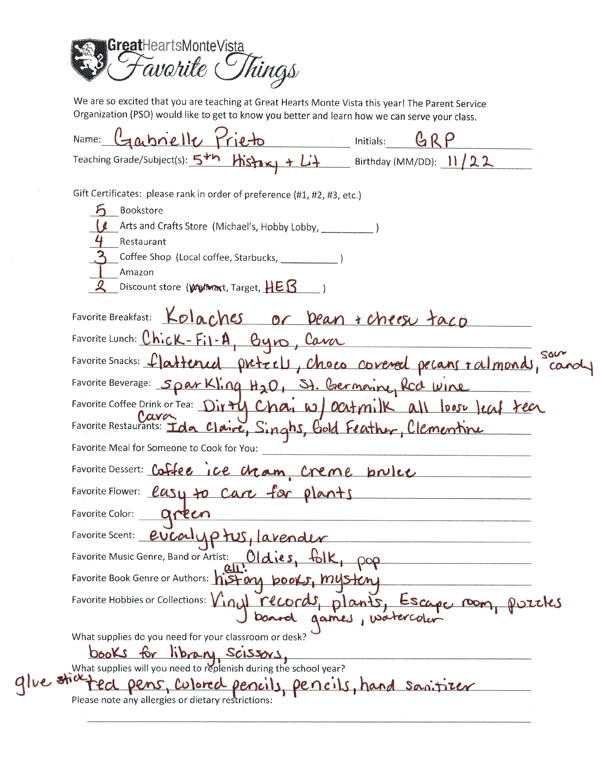 GreatHeartsMonteVista
Favorite Things
We are so excited that you are teaching at Great Hearts Monte Vista this year! The Parent Service
Organization (PSO) would like to get to know you better and learn how we can serve your class.
Name: Gabrielle Prieto Initials: GRP
Teaching Grade/Subject(s): 5th History + Lit Birthday (MM/DD): 11/22
Gift Certificates: please rank in order of preference (#1, #2, #3, etc.)
5 Bookstore
6 Arts and Crafts Store (Michael's, Hobby Lobby, __________ )
4 Restaurant
3 Coffee Shop (Local coffee, Starbucks, __________ )
1 Amazon
2 Discount store (Walmart, Target, HEB )
Favorite Breakfast: Kolaches or bean + cheese taco
Favorite Lunch: Chick-Fil-A, Gyro, Cava
Favorite Snacks: flattened pretzels, choco covered pecans + almonds, sour candy
Favorite Beverage: sparkling H2O, St. Germaine, Red wine
Favorite Coffee Drink or Tea: Dirty Chai w/ oatmilk all loose leaf tea
Favorite Restaurants: Cava Ida Claire, Singhs, Gold Feather, Clementine
Favorite Meal for Someone to Cook for You:
Favorite Dessert: coffee ice cream, creme brulee
Favorite Flower: easy to care for plants
Favorite Color: green
Favorite Scent: eucalyptus, lavender
Favorite Music Genre, Band or Artist: Oldies, folk, pop
Favorite Book Genre or Authors: all! history books, mystery
Favorite Hobbies or Collections: Vinyl records, plants, Escape room, puzzles
board games, watercolor
What supplies do you need for your classroom or desk?
books for library, scissors,
What supplies will you need to replenish during the school year?
glue sticks, red pens, colored pencils, pencils, hand sanitizer
Please note any allergies or dietary restrictions: